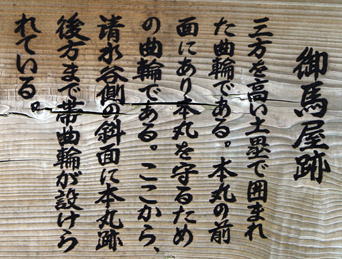 御馬屋跡
三方を高い土塁で囲まれ
た曲輪である。本丸の前
面にあり本丸を守るため
の曲輪である。ここから、
清水谷側の斜面に本丸跡
後方まで帯曲輪が設けら
れている。